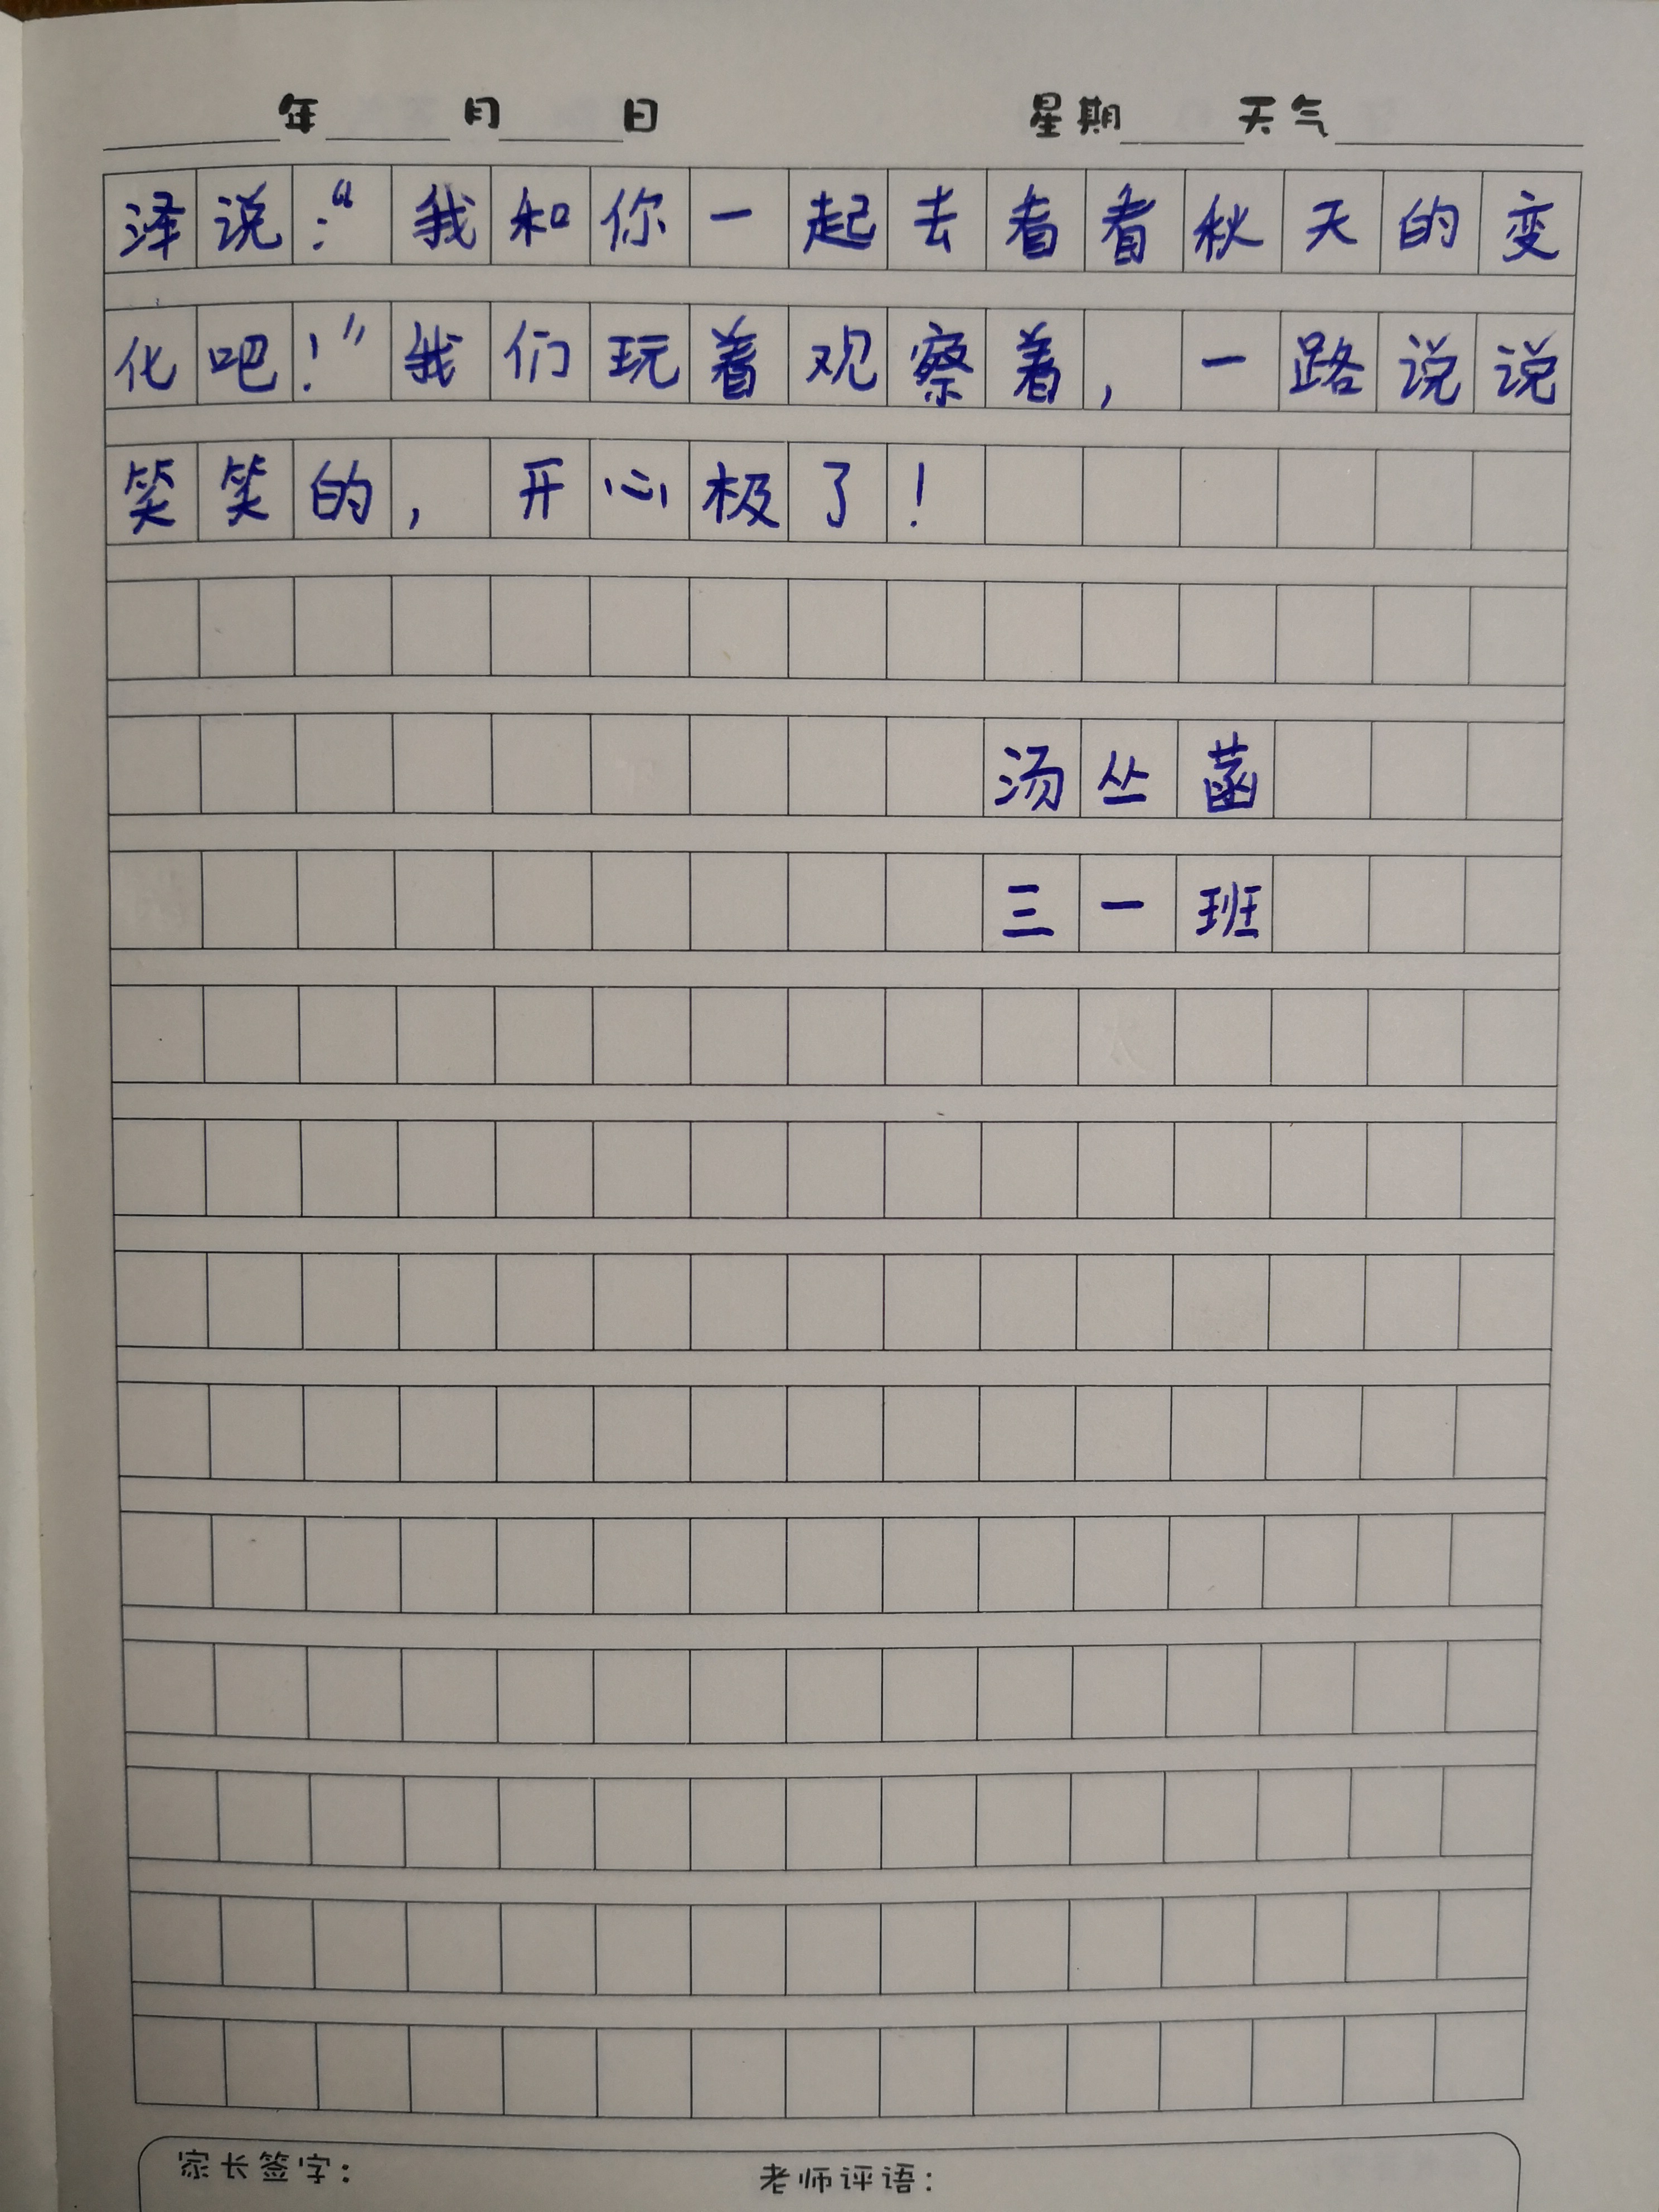 年 月 日 星期 天气
泽说：“我和你一起去看看秋天的变
化吧！”我们玩着观察着，一路说说
笑笑的，开心极了！
汤丛菡
三一班
家长签字： 老师评语：